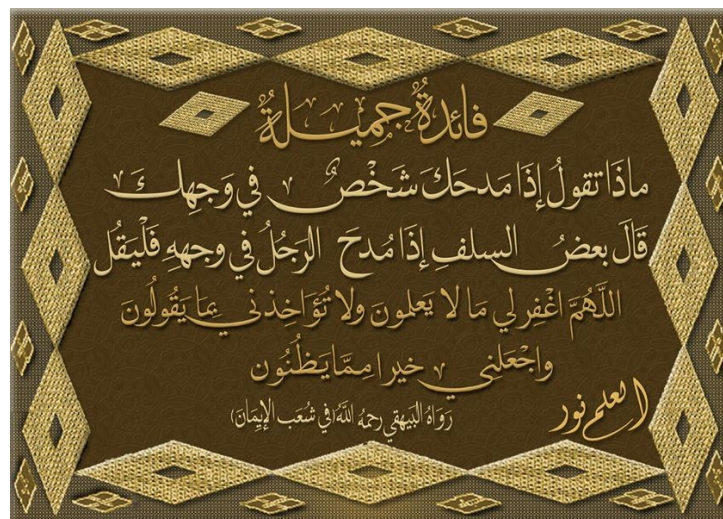 فائدةٌ جميلةٌ
ماذَا تقولُ إذَا مَدحَكَ شَخْصٌ في وَجهِكَ
قَالَ بعضُ السلفِ إذَا مُدحَ الرَجُلُ في وجههِ فَلْيَقُل
اللَّهُمَّ اغْفِر لي مَا لا يَعلمون ولا تُؤَاخِذني بِمَا يَقُولُون
واجْعَلنِي خيرا مِمَّا يَظُنُّون
رَوَاهُ البَيهقي رحمهُ اللهُ (في شُعَب الإِيمَان)
العلم نور